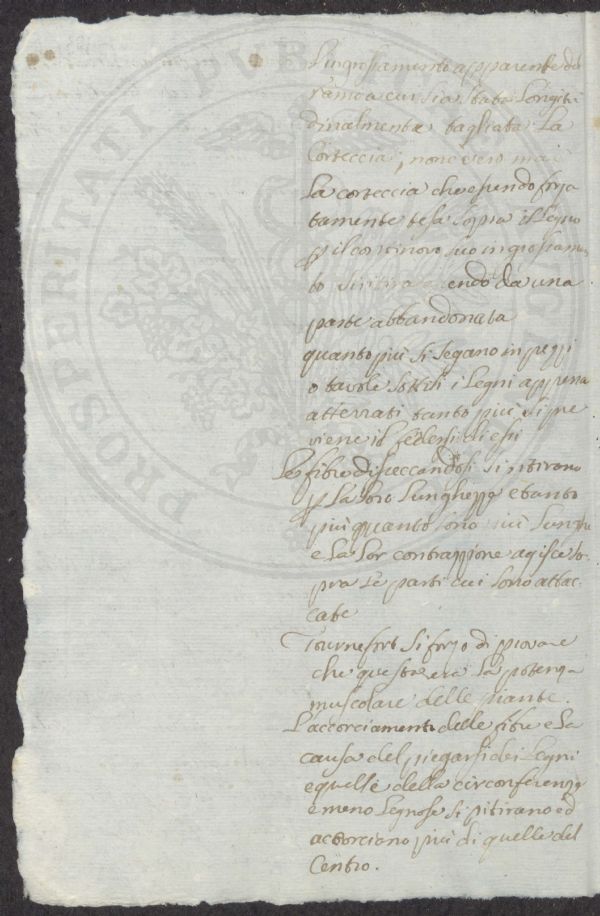 L'ingrossamento apparente del
ramo a cui sia stata longitu
dinalmente tagliata la
Corteccia, non è vero mai
La corteccia che essendo forza
tamente tesa sopra il Legno
p il continovo suo ingrossamen
to si ritira essendo da una
parte abbandonata
quanto più si segano in pezzi
o tavole sottili i Legni appena
atterrati tanto più si pre
viene il fendersi di essi
Le fibre disseccandosi si ritirano
p la loro lunghezza e tanto
più quanto sono più lunghe
e la lor contrazzione agisce so
pra le parti cui sono attac
cate
Tournefort si forzo di provare
che questa era la potenza
muscolare delle piante.
L'accorciamento delle fibre e la
causa del piegarsi dei Legni
e quelle della circonferenza
e meno Legnose si ritirano ed
accorciano più di quelle del
Centro.
PROSPERITATI PUBLICAE